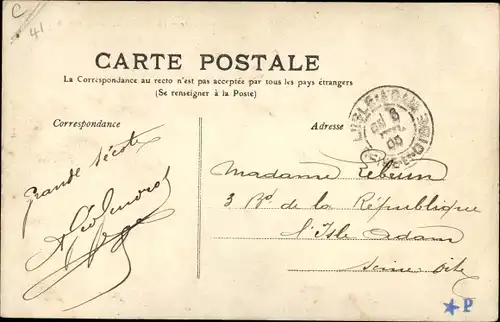 C
41
CARTE POSTALE
La Correspondance au recto n'est pas acceptée par tous les pays étrangers
(Se renseigner à la Poste)
Correspondance
Adresse
L'ISLE-ADAM
6
05
Grande
Madame Lebrun
3 Bd de la République
l'Isle Adam
Seine Oise
★P